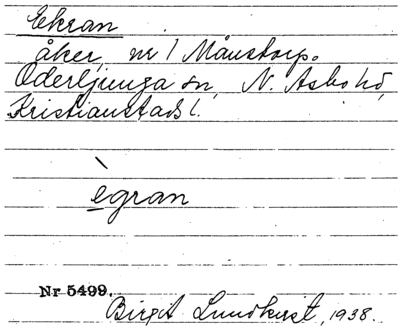 Ekran
åker, nr 1 Månstorp.
Oderljunga sn, N. Åsbo hd,
Kristianstads l.
ègran
Nr 5499.
Birgit Lundkvist, 1938.